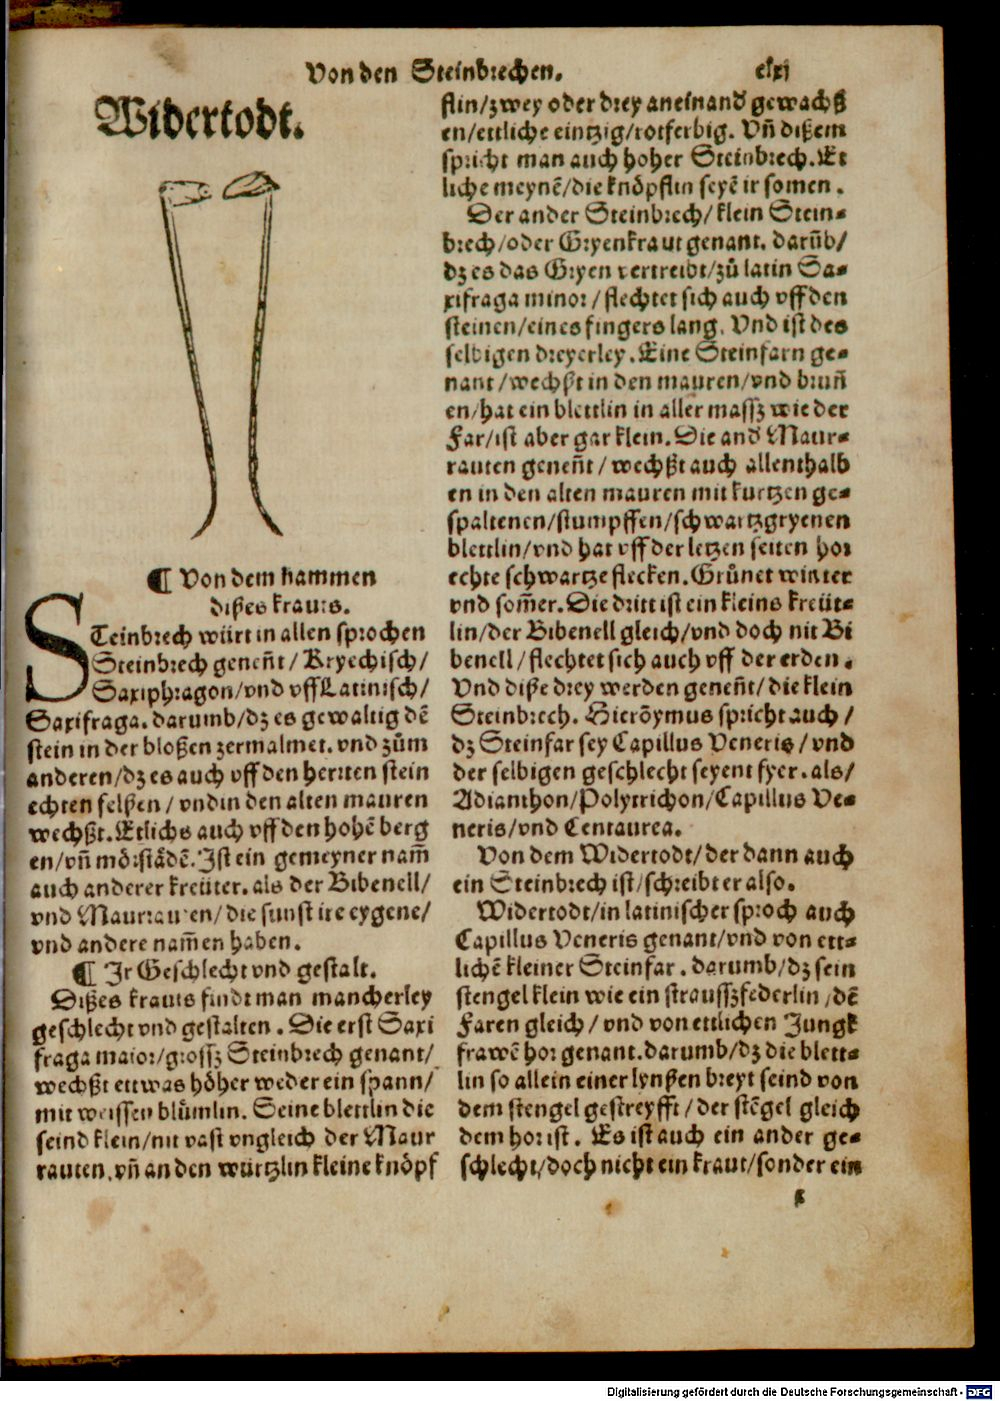 Von den Steinbrechen.
clxj
Widertodt.
¶ Von dem nammen
dißes krauts.
STeinbrech würt in allen sprochen
Steinbrech geneñt / Kryechisch /
Saxiphragon / vnd vff Latinisch /
Saxifraga. darumb / dz es gewaltig dē
stein in der bloßen zermalmet. vnd zům
anderen / dz es auch vff den herten stein
echten felßen / vnd in den alten mauren
wechßt. Etlichs auch vff den hohē berg
en / vñ mörstädē. Ist ein gemeyner nam̄
auch anderer kreüter. als der Bibenell /
vnd Maurrauten / die sunst ire eygene /
vnd andere nam̄en haben.
¶ Ir Geschlecht vnd gestalt.
Dißes krauts findt man mancherley
geschlecht vnd gestalten. Die erst Saxi
fraga maior / grossz Steinbrech genant /
wechßt ettwas höher weder ein spann /
mit weissen blůmlin. Seine blettlin die
seind klein / nit vast vngleich der Maur
rauten. vñ an den würtzlin kleine knöpf
flin / zwey oder drey aneinand gewachß
en / ettliche eintzig / rotferbig. Vñ dißem
spricht man auch hoher Steinbrech. Et
liche meynē / die knöpflin seyē ir somen.
Der ander Steinbrech / klein Stein-
brech / oder Gryenkraut genant. darūb /
dz es das Gryen vertreibt / zů latin Sa-
xifraga minor / flechtet sich auch vff den
steinen / eines fingers lang. Vnd ist des
selbigen dreyerley. Eine Steinfarn ge-
nant / wechßt in den mauren / vnd bruñ
en / hat ein blettlin in aller massz wie der
Far / ist aber gar klein. Die and Maur-
rauten geneñt / wechßt auch allenthalb
en in den alten mauren mit kurtzen ge-
spaltenen / stumpffen / schwartzgryenen
blettlin / vnd hat vff der letzen seiten hor
echte schwartze flecken. Grůnet winter
vnd som̄er. Die dritt ist ein kleins kreüt-
lin / der Bibenell gleich / vnd doch nit Bi
benell / flechtet sich auch vff der erden.
Vnd diße drey werden geneñt / die klein
Steinbrech. Hierōymus spricht auch /
dz Steinfar sey Capillus Veneris / vnd
der selbigen geschlecht seyent fyer. als /
Adianthon / Polytrichon / Capillus Ve-
neris / vnd Centaurea.
Von dem Widertodt / der dann auch
ein Steinbrech ist / schreibt er also.
Widertodt / in latinischer sproch auch
Capillus Veneris genant / vnd von ett-
lichē kleiner Steinfar. darumb / dz sein
stengel klein wie ein straussz federlin / dē
Faren gleich / vnd von ettlichen Jungk
frawē hor genant. darumb / dz die blett-
lin so allein einer lynßen breyt seind von
dem stengel gestreyfft / der stēgel gleich
dem hor ist. Es ist auch ein ander ge-
schlecht / doch nicht ein kraut / sonder ein
Digitalisierung gefördert durch die Deutsche Forschungsgemeinschaft - DFG